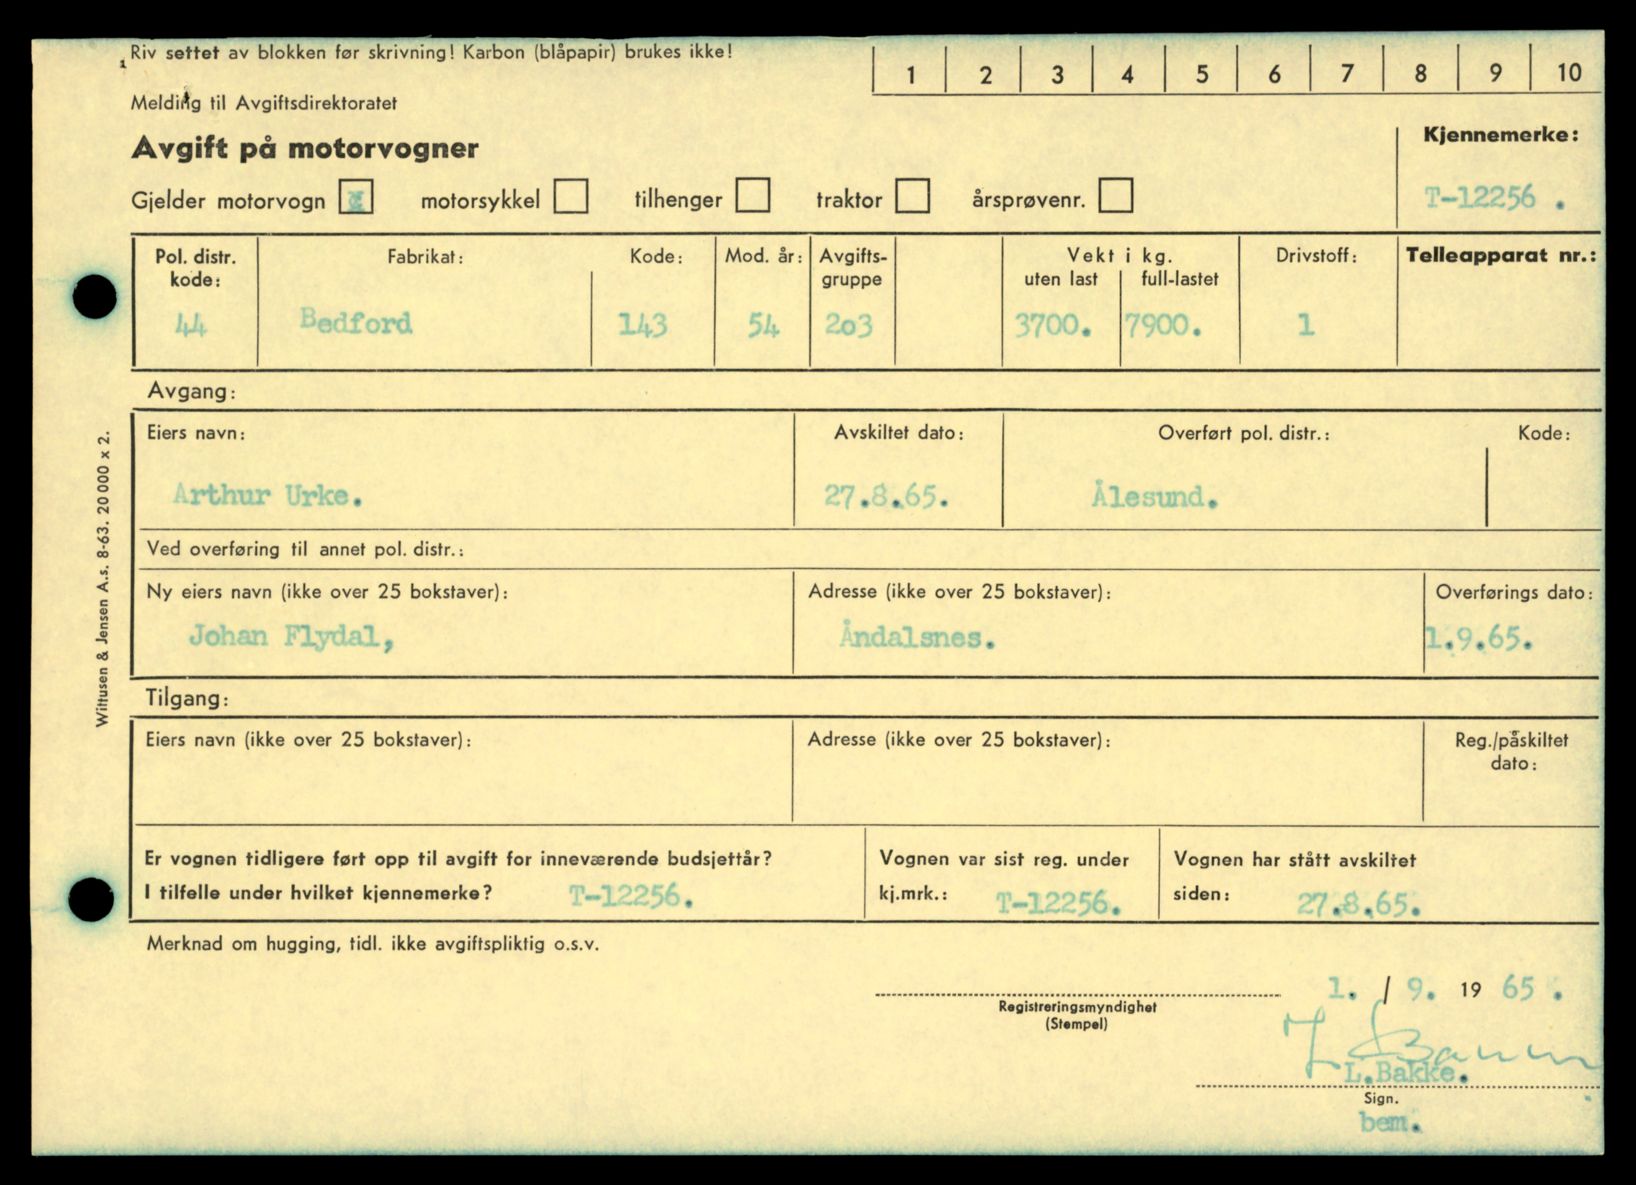 Riv settet av blokken før skrivning! Karbon (blåpapir) brukes ikke!
1 2 3 4 5 6 7 8 9 10
Melding til Avgiftsdirektoratet
Avgift på motorvogner
Kjennemerke:
Gjelder motorvogn x motorsykkel tilhenger traktor årsprøvenr.
T-12256 .
Pol. distr. kode: Fabrikat: Kode: Mod. år: Avgifts-gruppe Vekt i kg. uten last full-lastet Drivstoff: Telleapparat nr.:
44 Bedford 143 54 203 3700. 7900. 1
Avgang:
Eiers navn: Avskiltet dato: Overført pol. distr.: Kode:
Arthur Urke. 27.8.65. Ålesund.
Ved overføring til annet pol. distr.:
Ny eiers navn (ikke over 25 bokstaver): Adresse (ikke over 25 bokstaver): Overførings dato:
Johan Flydal, Åndalsnes. 1.9.65.
Tilgang:
Eiers navn (ikke over 25 bokstaver): Adresse (ikke over 25 bokstaver): Reg./påskiltet dato:
Er vognen tidligere ført opp til avgift for inneværende budsjettår? Vognen var sist reg. under Vognen har stått avskiltet
I tilfelle under hvilket kjennemerke? T-12256. kj.mrk.: T-12256. siden: 27.8.65.
Merknad om hugging, tidl. ikke avgiftspliktig o.s.v.
1. / 9. 19 65 .
Registreringsmyndighet
(Stempel)
L.Bakke.
Sign.
bem.
Wittusen & Jensen A.s. 8-63. 20 000 x 2.